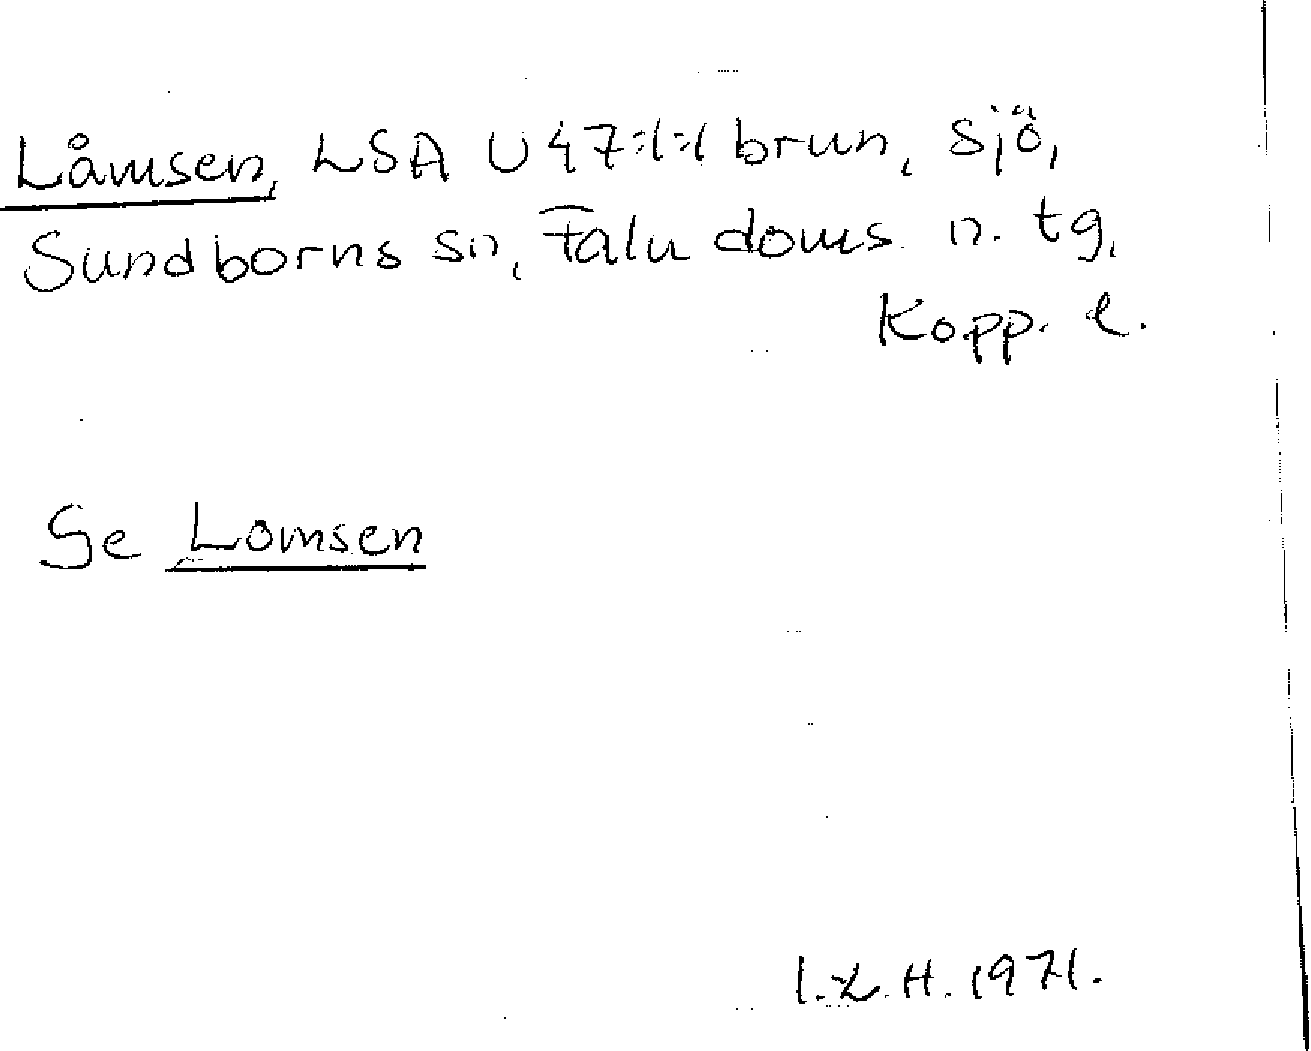 Låmsen, LSA U47:1:1 brun, sjö,
Sundborns sn, Falu doms. n. tg,
Kopp. l.
Se Lomsen
1971.